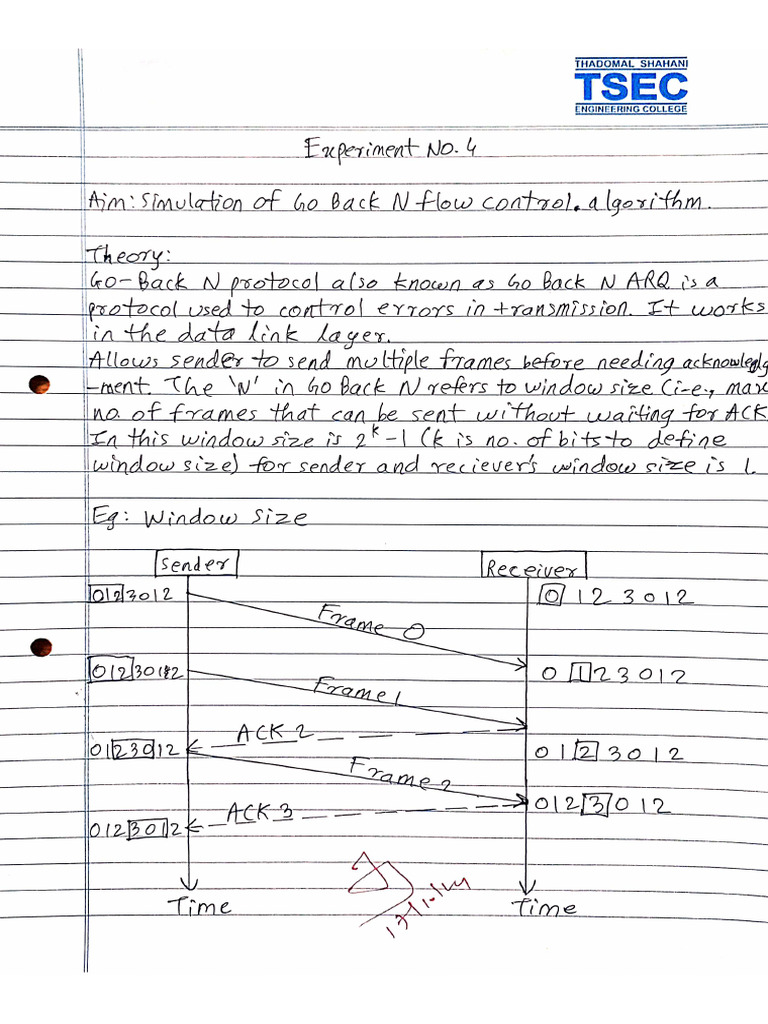 THADOMAL SHAHANI
TSEC
ENGINEERING COLLEGE
Experiment No. 4
Aim: Simulation of Go Back N flow control. algorithm.
Theory:
Go-Back N protocol also known as Go Back N ARQ is a
protocol used to control errors in transmission. It works
in the data link layer.
Allows sender to send multiple frames before needing acknowledg
-ment. The 'N' in Go Back N refers to window size (i-e., max
no. of frames that can be sent without waiting for ACK
In this window size is 2^k-1 (k is no. of bits to define
window size) for sender and reciever's window size is 1.
Eg: Window Size
Sender Receiver
0123012 0123012
Frame 0
0123012 0123012
Frame 1
ACK 2
0123012 0123012
Frame 2
0123012
ACK 3
0123012
Time Time